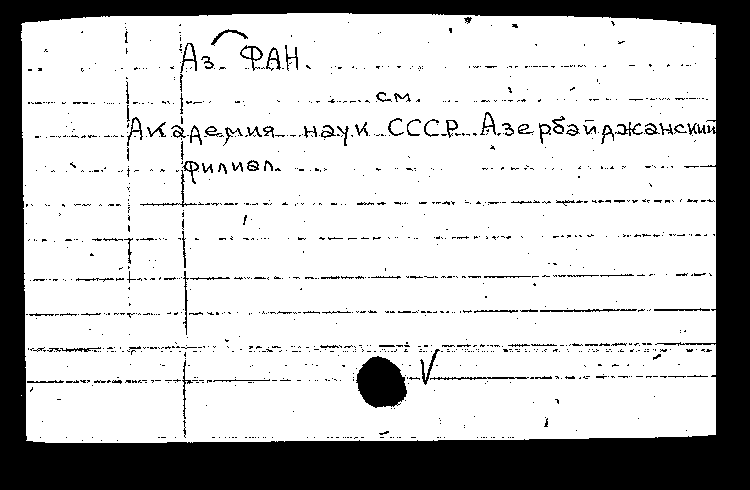 Аз ФАН.
см.
Академия наук СССР. Азербайджанский
филиал.
V